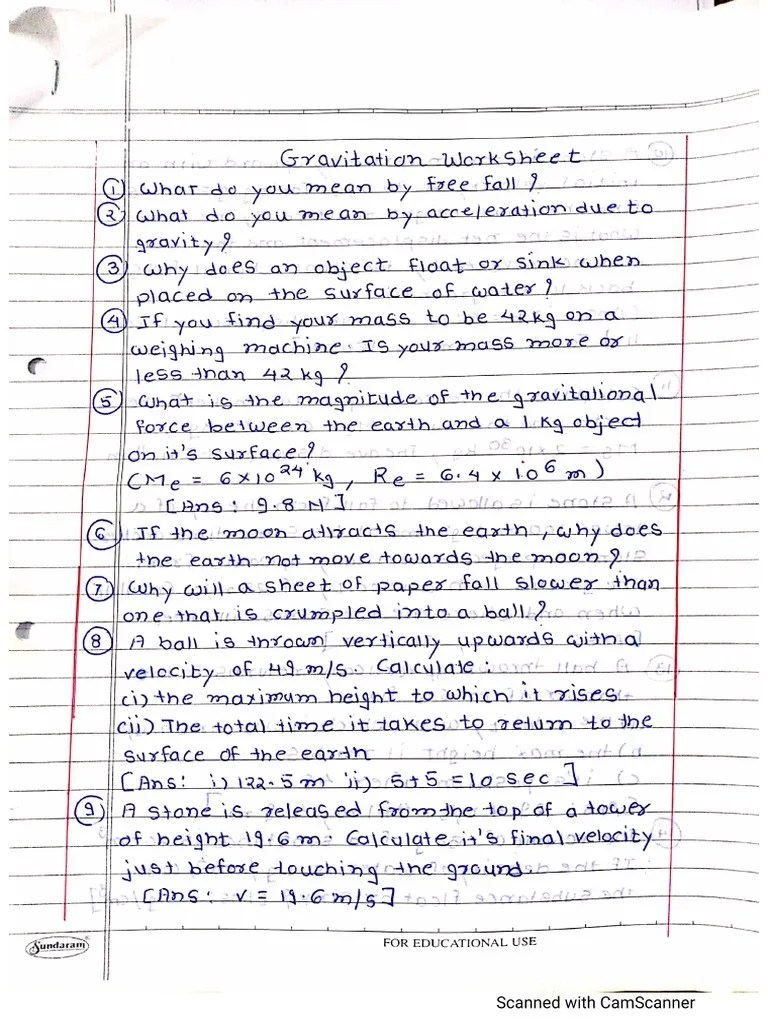 Gravitation Worksheet
① What do you mean by free fall ?
② What do you mean by acceleration due to
gravity ?
③ Why does an object float or sink when
placed on the surface of water ?
④ If you find your mass to be 42kg on a
weighing machine. Is your mass more or
less than 42 kg ?
⑤ What is the magnitude of the gravitational
force between the earth and a 1 Kg object
on it's surface ?
(Me = 6×10²⁴ kg, Re = 6.4 × 10⁶ m)
[Ans : 9.8 N]
⑥ If the moon attracts the earth, why does
the earth not move towards the moon ?
⑦ Why will a sheet of paper fall slower than
one that is crumpled into a ball ?
⑧ A ball is thrown vertically upwards with a
velocity of 49 m/s. Calculate :
(i) the maximum height to which it rises
(ii) The total time it takes to return to the
surface of the earth
[Ans: i) 122.5 m ii) 5+5 = 10 sec]
⑨ A stone is released from the top of a tower
of height 19.6 m. Calculate it's final velocity
just before touching the ground.
[Ans: v = 19.6 m/s]
Sundaram
FOR EDUCATIONAL USE
Scanned with CamScanner